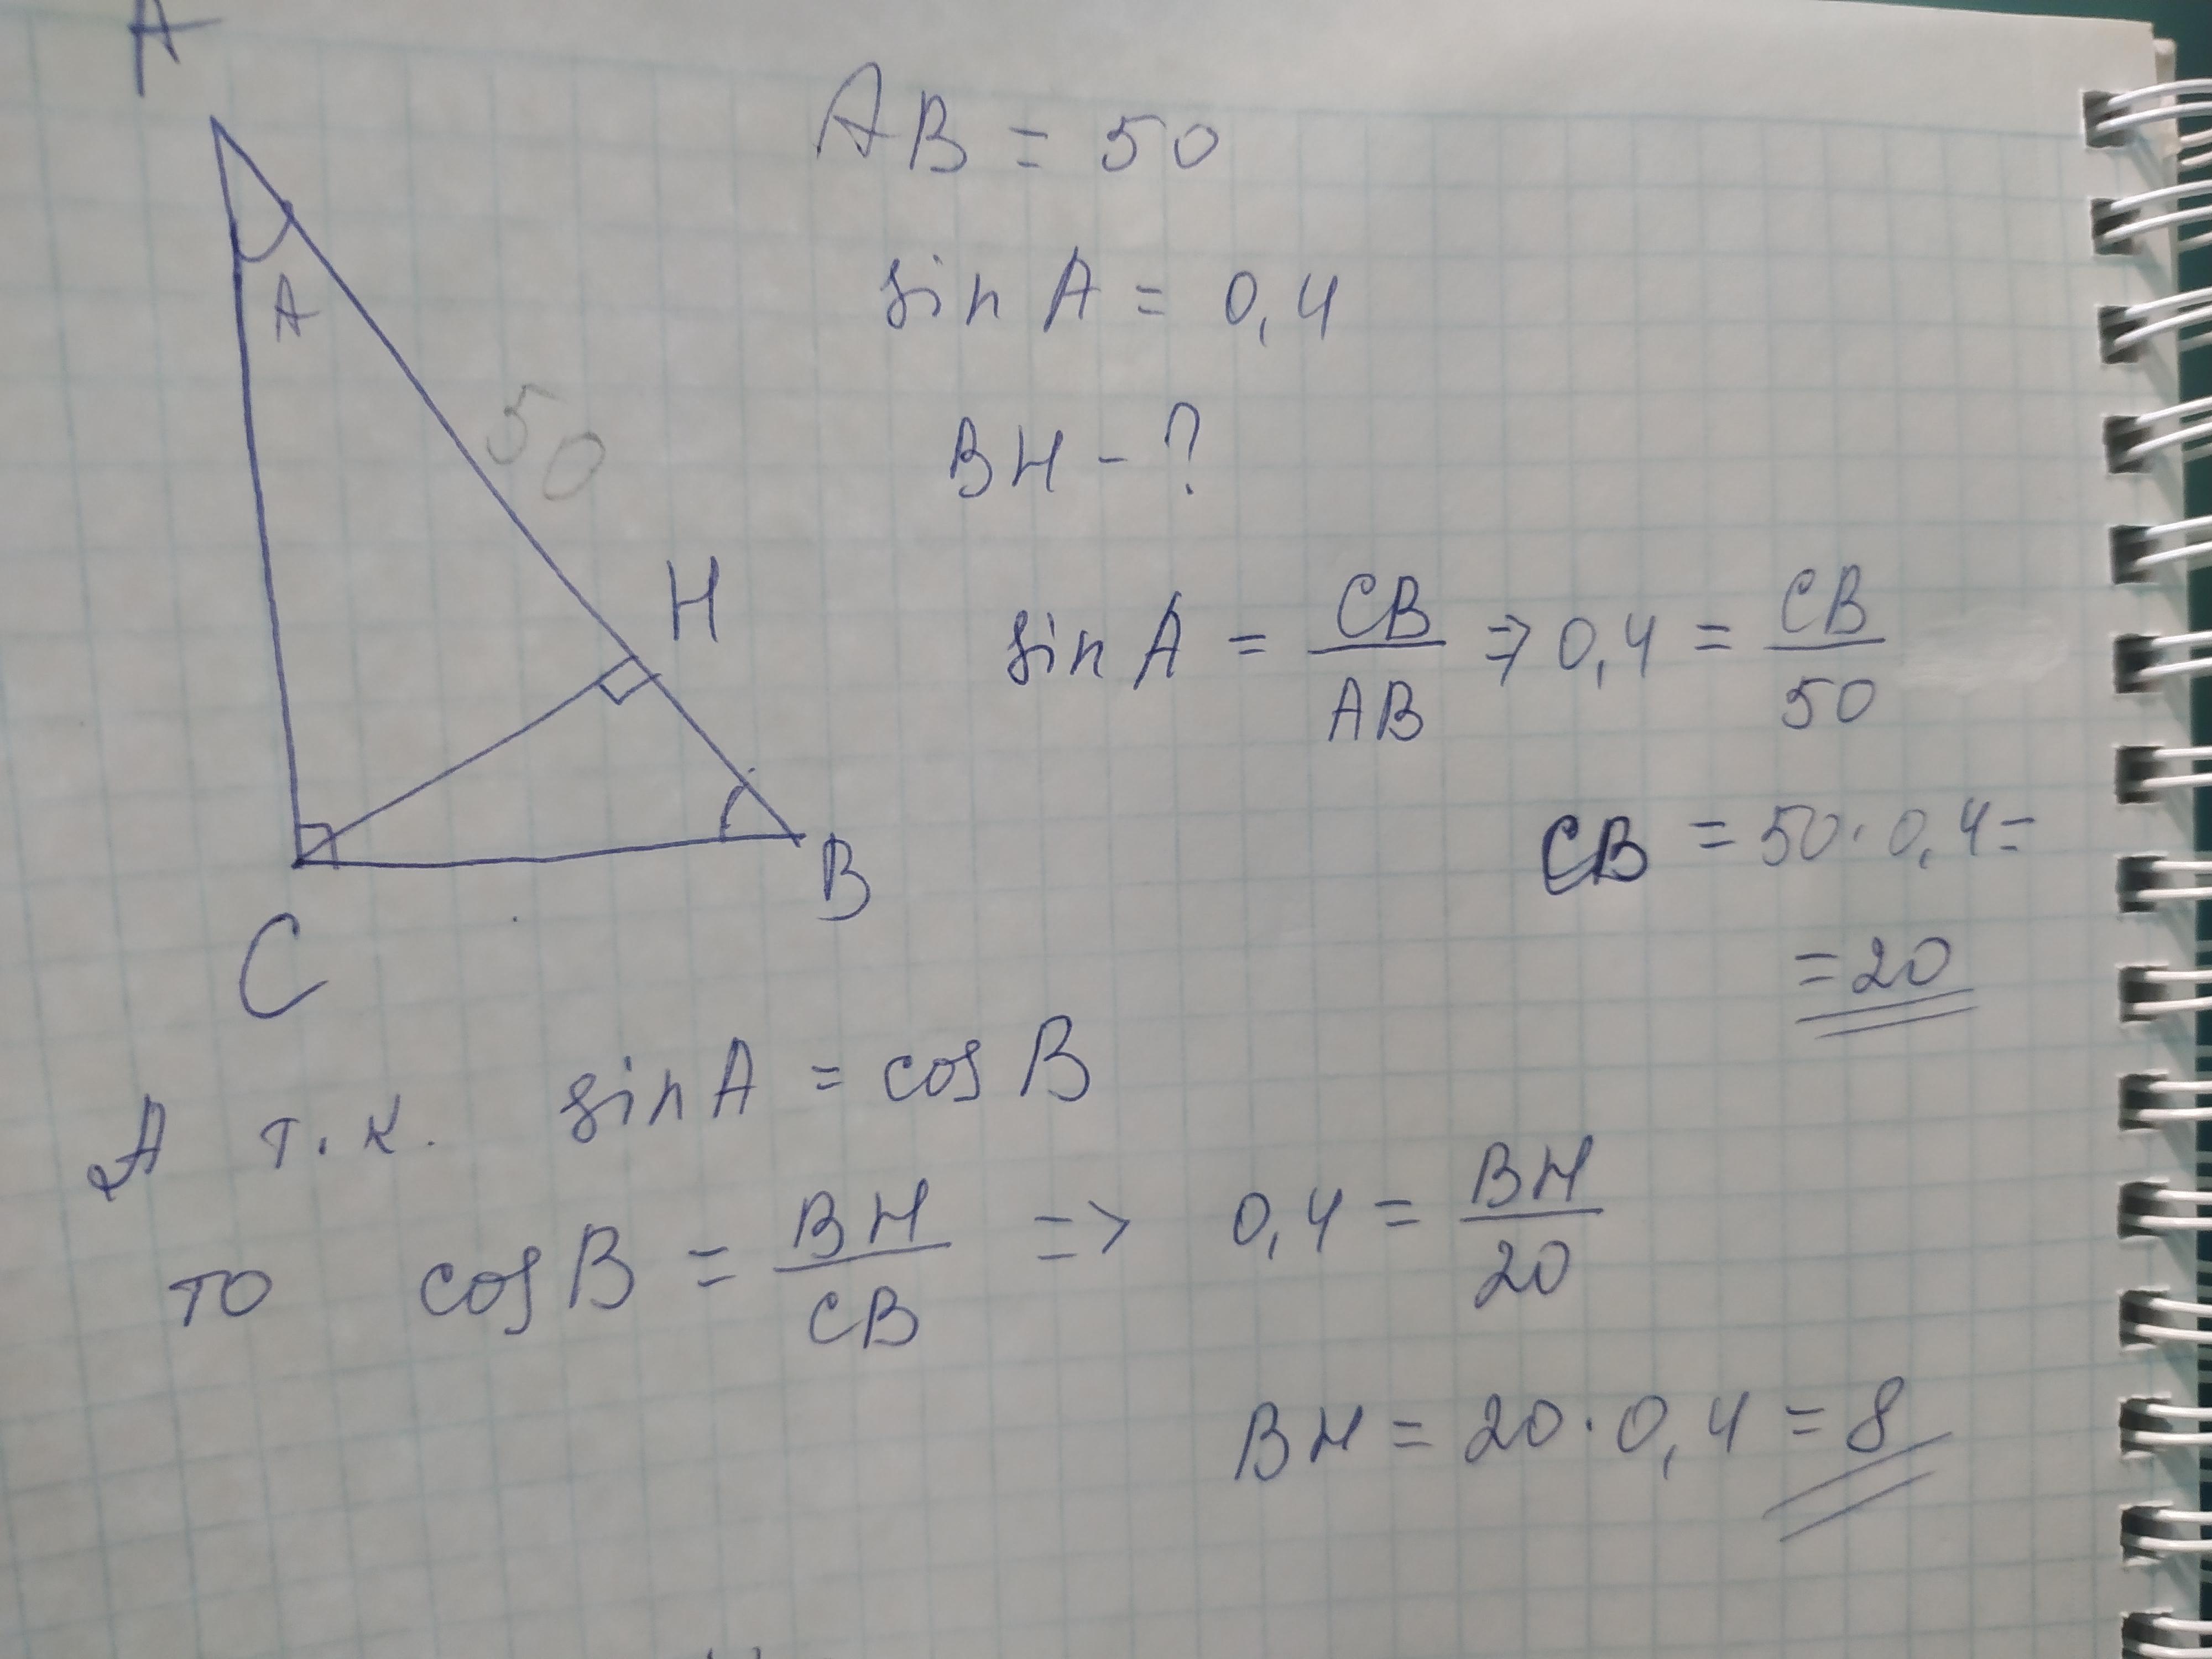 A
AB = 50
sin A = 0,4
A
50
BH - ?
H
sin A = CB/AB => 0,4 = CB/50
B
CB = 50 · 0,4 =
= 20
C
А т.к. sin A = cos B
то cos B = BH/CB => 0,4 = BH/20
BH = 20 · 0,4 = 8